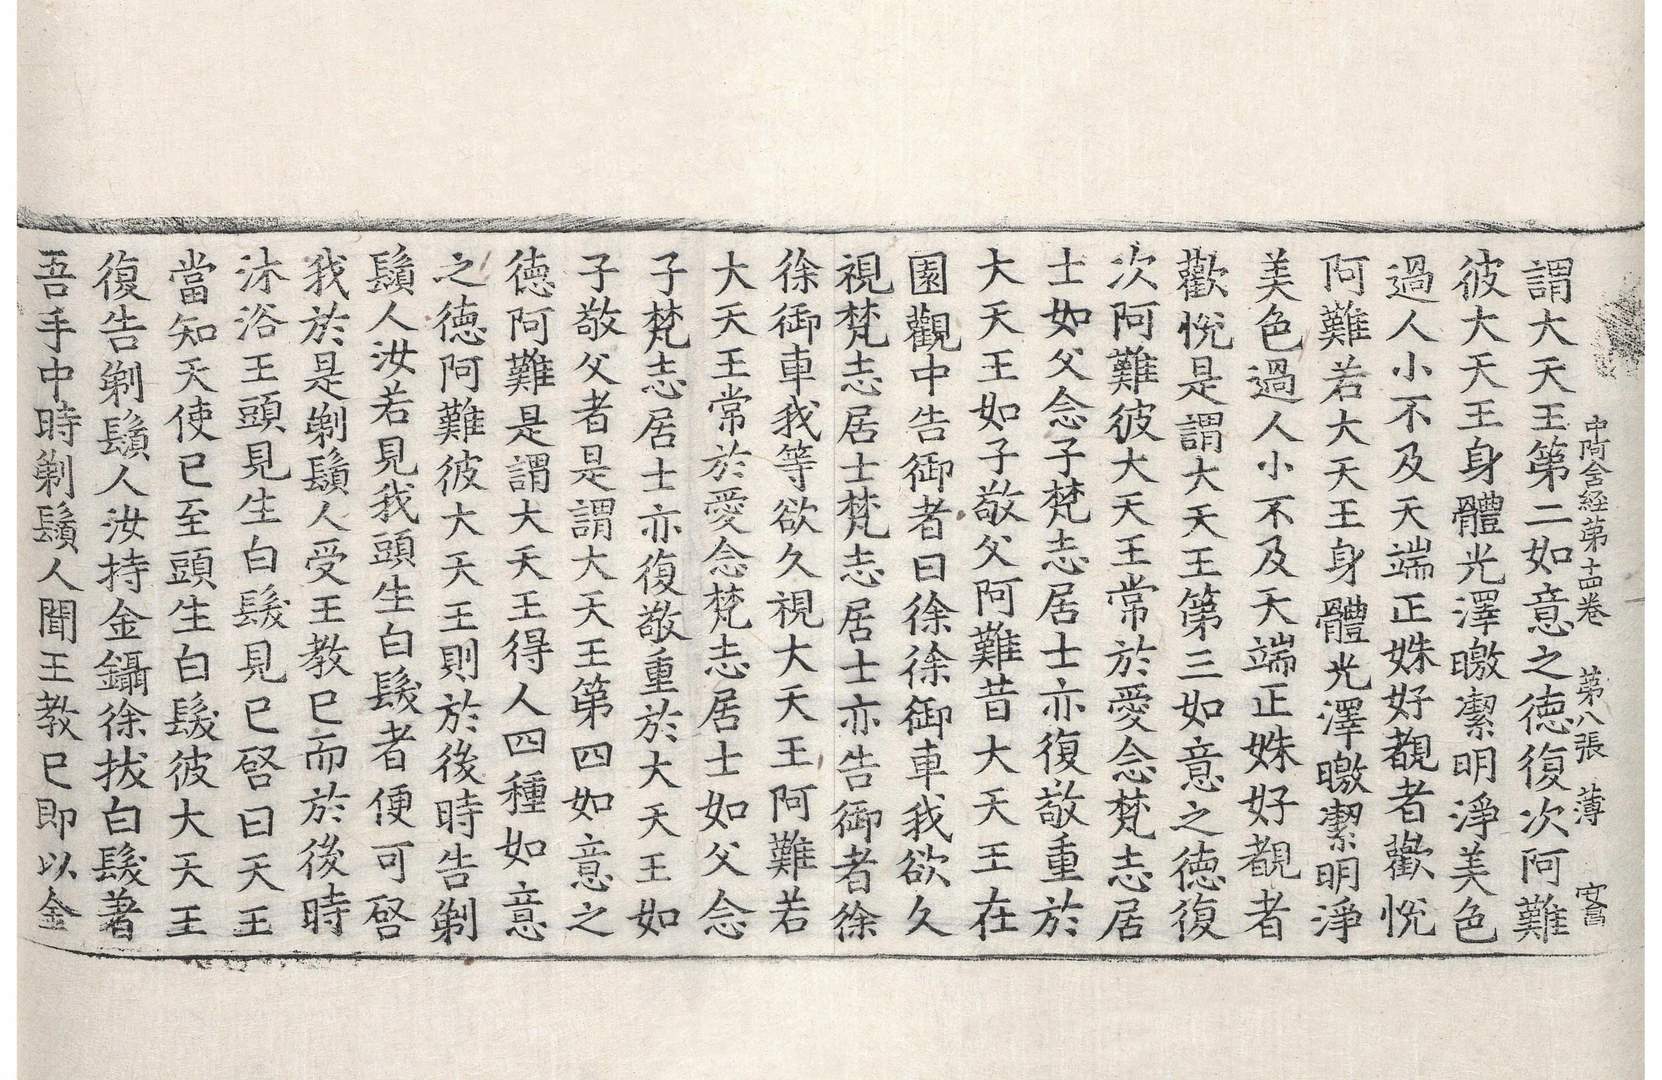 中阿含経第十四卷 第八張 薄
謂大天王第二如意之徳復次阿難
彼大天王身體光澤曒潔明淨美色
過人小不及天端正姝好覩者歡悅
阿難若大天王身體光澤曒潔明淨
美色過人小不及天端正姝好覩者
歡悅是謂大天王第三如意之徳復
次阿難彼大天王常於愛念梵志居
士如父念子梵志居士亦復敬重於
大天王如子敬父阿難昔大天王在
園觀中告御者曰徐徐御車我欲久
視梵志居士梵志居士亦告御者徐
徐御車我等欲久視大天王阿難若
大天王常於愛念梵志居士如父念
子梵志居士亦復敬重於大天王如
子敬父者是謂大天王第四如意之
徳阿難是謂大天王得人四種如意
之徳阿難彼大天王則於後時告剃
鬚人汝若見我頭生白髮者便可啓
我於是剃鬚人受王教已而於後時
沐浴王頭見生白髮見已啓曰天王
當知天使已至頭生白髮彼大天王
復告剃鬚人汝持金鑷徐拔白髮著
吾手中時剃鬚人聞王教已即以金